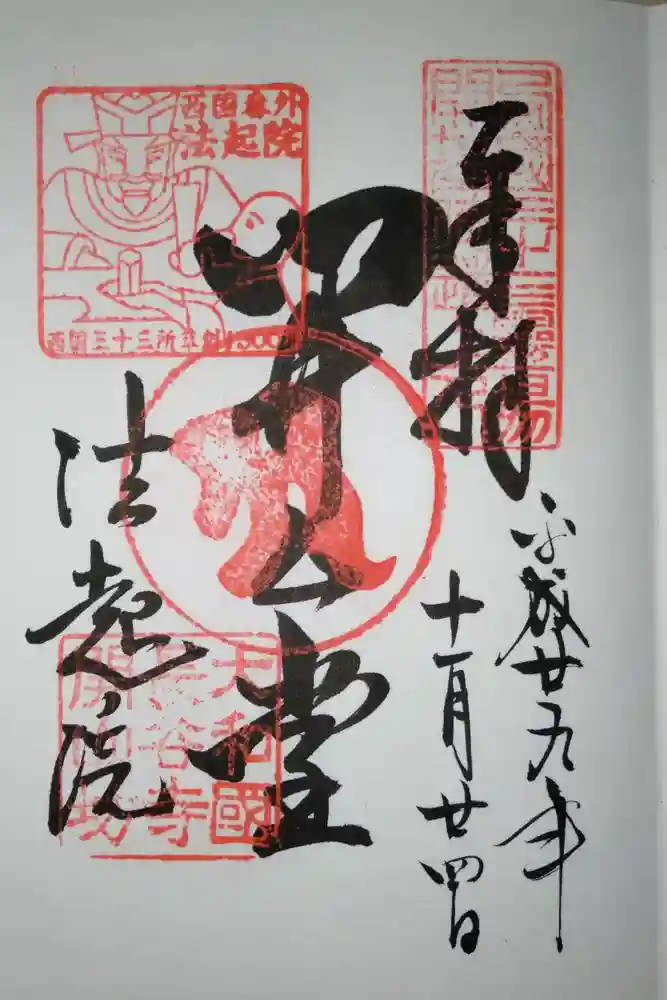 奉拝
平成廿九年
十一月廿四日
開山堂
法起院
西国番外
法起院
西国三十三所草創
大和國
長谷寺
開山坊